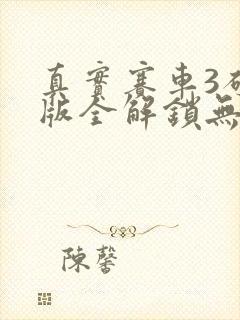 真實賽車3破
版全解鎖無
陳馨